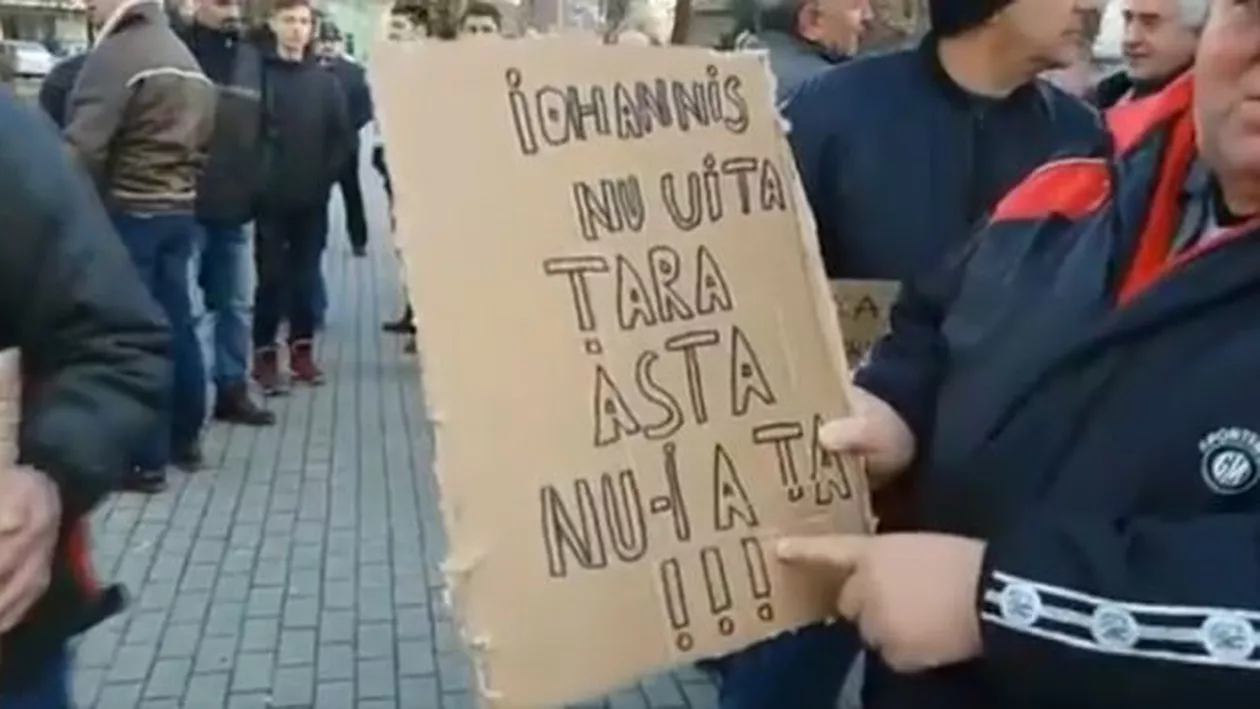 IOHANNIS
NU UITA
ȚARA
ASTA
NU-I A ȚA
!!!